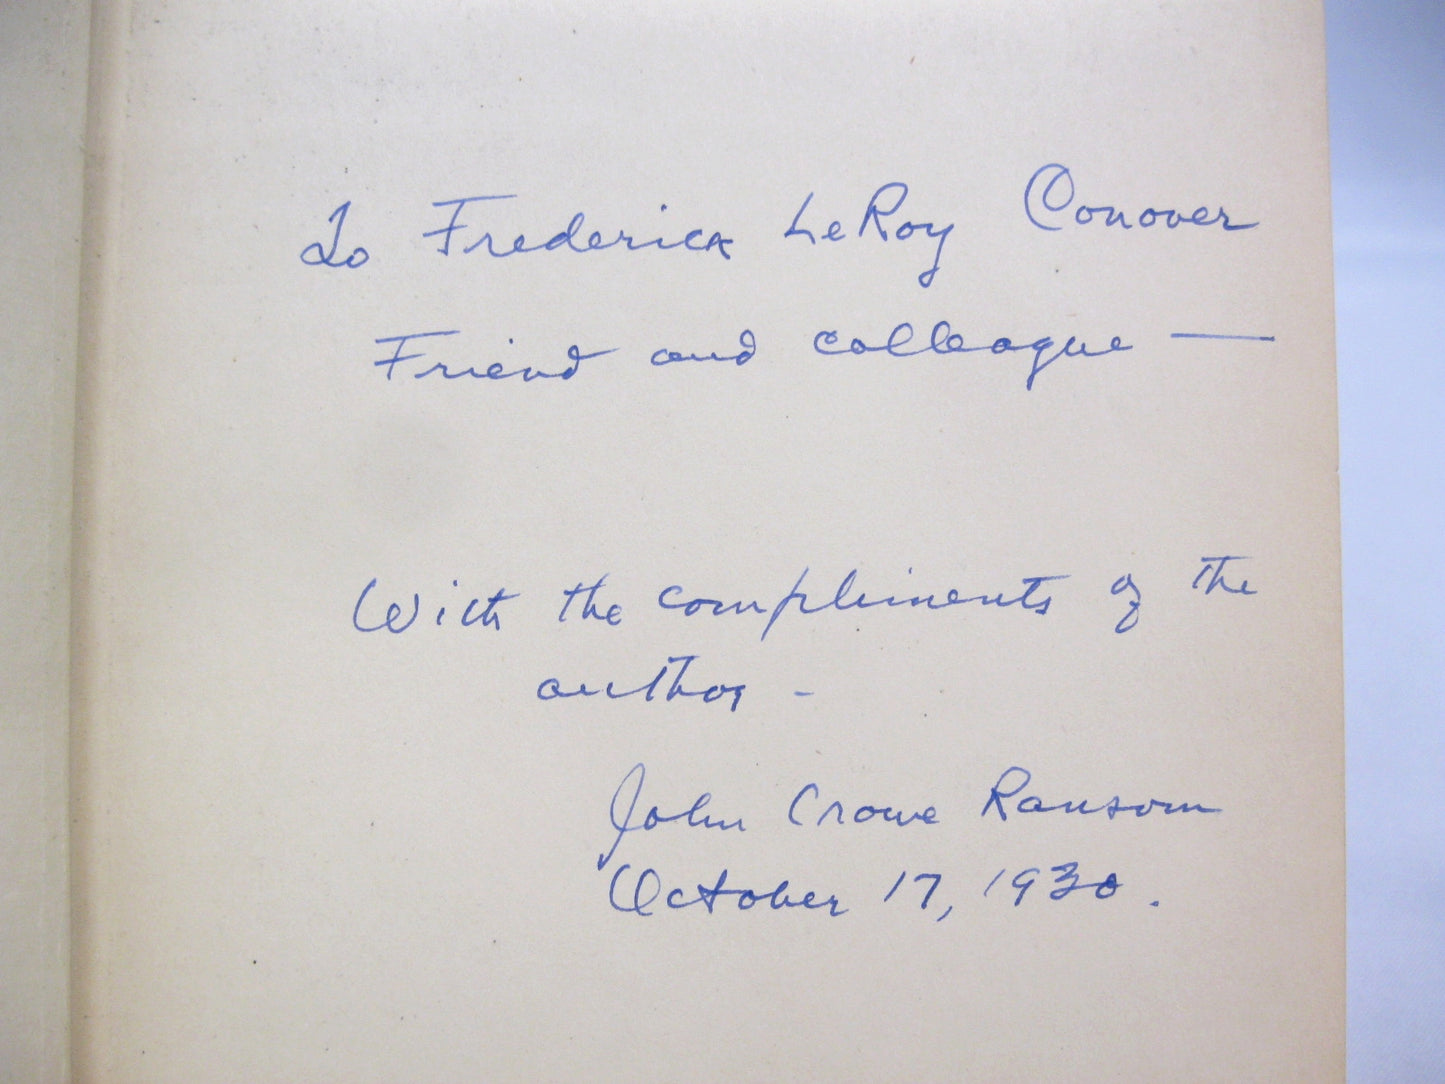 To Frederick LeRoy Conover
Friend and colleague —
With the compliments of the
author -
John Crowe Ransom
October 17, 1930.